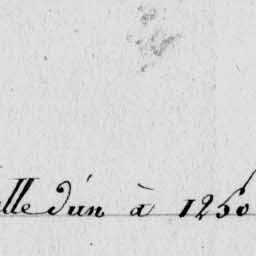 elle d'un à 1250